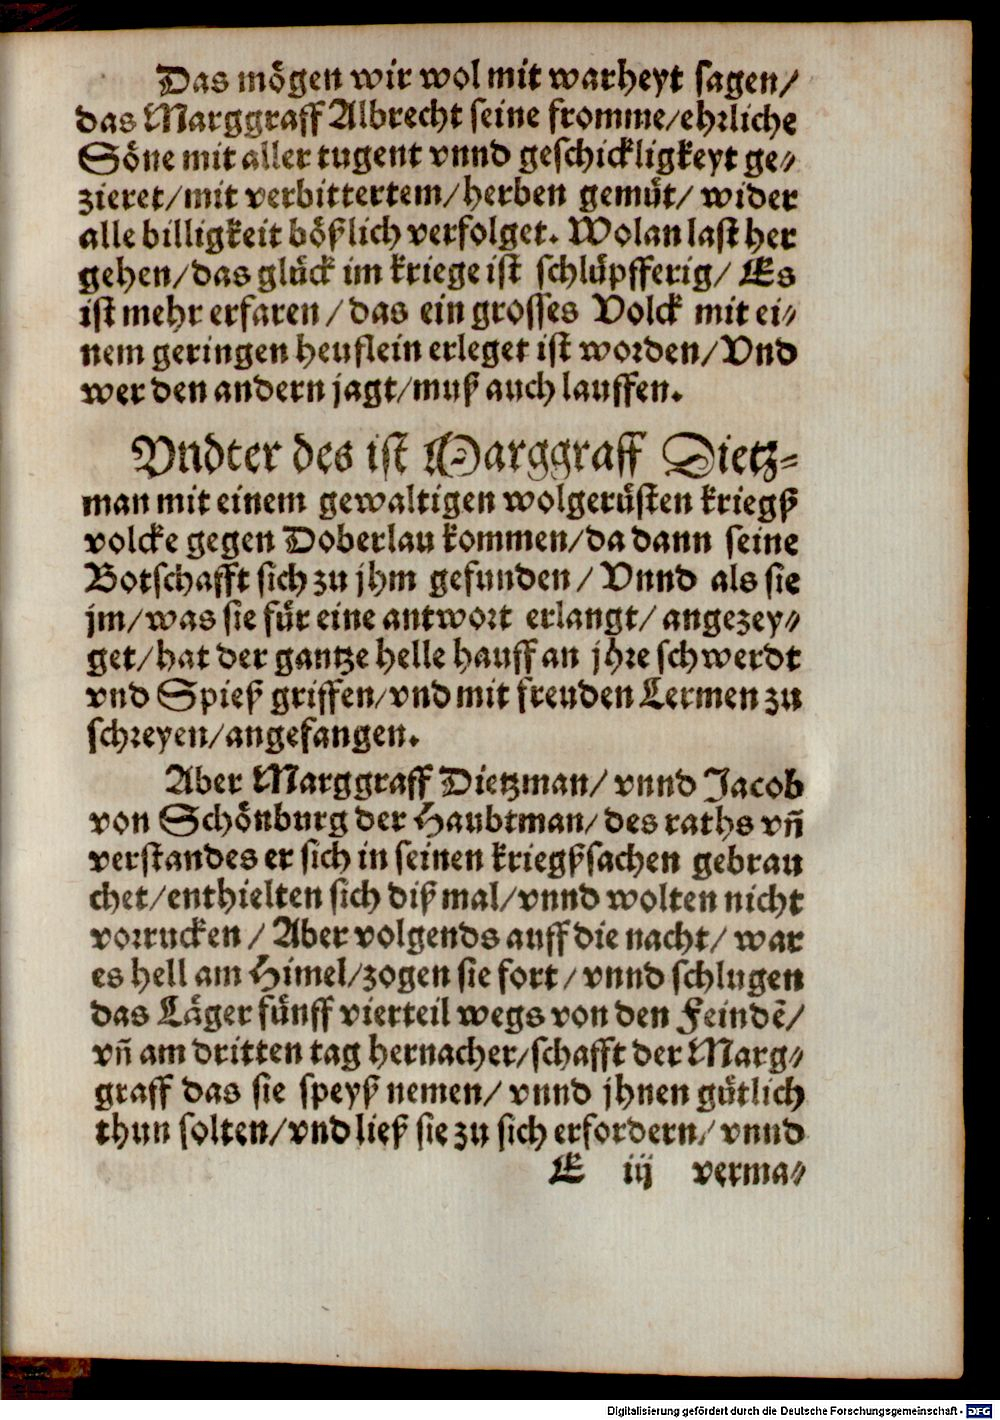 Das mögen wir wol mit warheyt sagen/
das Marggraff Albrecht seine fromme/ehrliche
Söne mit aller tugent vnnd geschickligkeyt ge-
zieret/mit verbittertem/herben gemüt/ wider
alle billigkeit bößlich verfolget. Wolan last her
gehen/das glück im kriege ist schlüpfferig/ Es
ist mehr erfaren / das ein grosses Volck mit ei-
nem geringen heuflein erleget ist worden/Vnd
wer den andern jagt/muß auch lauffen.
Vndter des ist Marggraff Dietz-
man mit einem gewaltigen wolgerüsten kriegß
volcke gegen Doberlau kommen/da dann seine
Botschafft sich zu jhm gefunden / Vnnd als sie
jm/was sie für eine antwort erlangt/ angezey-
get/hat der gantze helle hauff an jhre schwerdt
vnd Spieß griffen/vnd mit freuden Lermen zu
schreyen/angefangen.
Aber Marggraff Dietzman/ vnnd Jacob
von Schönburg der Haubtman/des raths vñ
verstandes er sich in seinen kriegßsachen gebrau
chet/enthielten sich diß mal/vnnd wolten nicht
vorrucken / Aber volgends auff die nacht/ war
es hell am Himel/zogen sie fort / vnnd schlugen
das Läger fünff vierteil wegs von den Feindẽ/
vñ am dritten tag hernacher/schafft der Marg-
graff das sie speyß nemen/ vnnd jhnen gütlich
thun solten/vnd ließ sie zu sich erfordern/ vnnd
E iij verma-
Digitalisierung gefördert durch die Deutsche Forschungsgemeinschaft - DFG